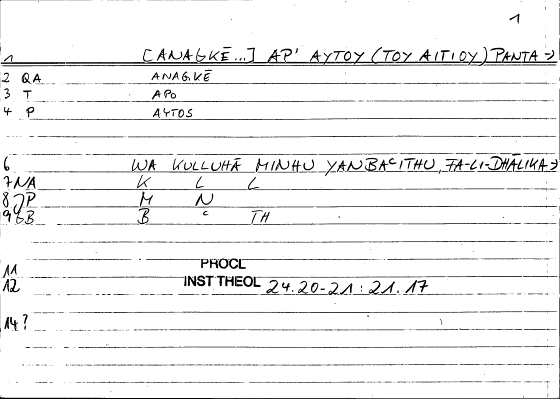 1
1 [ANAGKĒ...] AP' AYTOY (TOY AITIOY) PANTA →
2 QA ANAGKĒ
3 T APO
4 P AYTOS
6 WA KULLUHĀ MINHU YANBAʿITHU, FA-LI-DHĀLIKA →
7 NA K L L
8 JP M N
9 GB B ʿ TH
11 PROCL
12 INST THEOL 24.20-21 : 21.17
14?